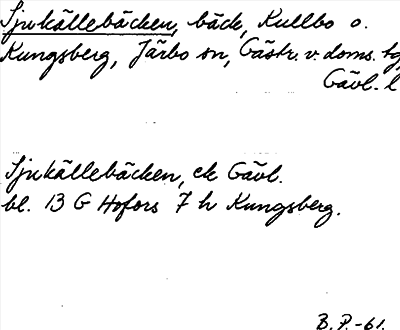 Sjukällebäcken, bäck, Kullbo o.
Kungsberg, Järbo sn, Gästr. v. doms. tg,
Gävl. l
Sjukällebäcken, ek Gävl.
bl. 13 G Hofors 7 h Kungsberg.
B. P. -61.